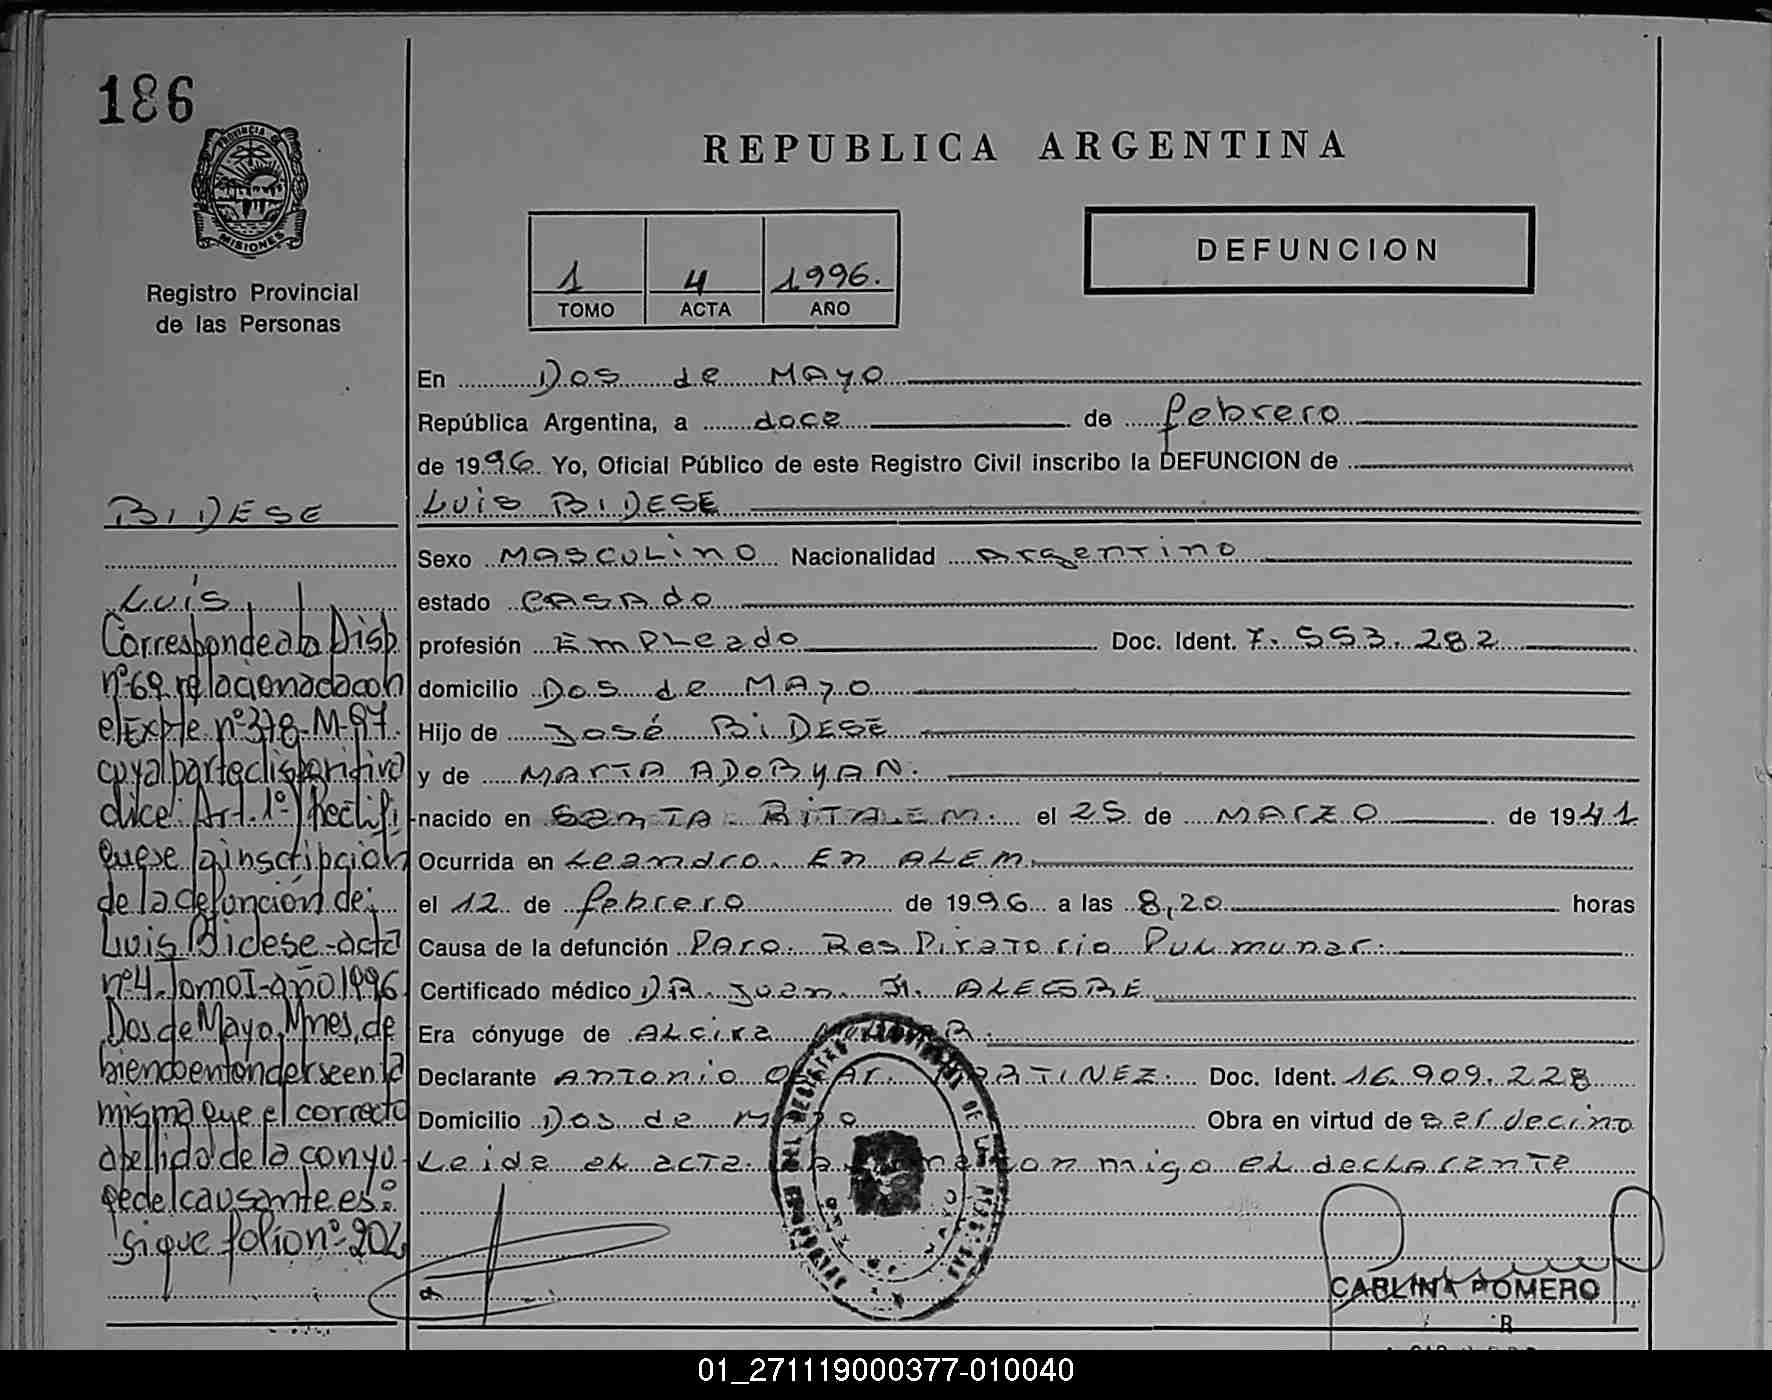 186
PROVINCIA DE
MISIONES
Registro Provincial
de las Personas
REPUBLICA ARGENTINA
1 4 1996.
TOMO ACTA AÑO
DEFUNCION
En Dos de MAYO
República Argentina, a doce de febrero
de 1996. Yo, Oficial Público de este Registro Civil inscribo la DEFUNCION de
Luis BIDESE
Sexo MASCULINO Nacionalidad Argentino
estado CASADO
profesión EmPLeado Doc. Ident. 7.553.282
domicilio Dos de MAYO
Hijo de José BIDESE
y de MARTA ADOBYAN.
nacido en el 25 de MARZO de 1941
Ocurrida en Leandro. En ALEM.
el 12 de febrero de 1996 a las 8,20 horas
Causa de la defunción Paro. ResPiratorio Pulmunar.
Certificado médico DR. Juan. ALEGRE
Era cónyuge de ALcira
Declarante ANTONIO MARTINEZ. Doc. Ident. 16.909.228
Domicilio Dos de MAYO Obra en virtud de ser vecino
Leida el acta. conmigo el declarante
CARLINA ROMERO
BIDESE
Luis
Corresponde a la Disp.
nº69 relacionada con
el Expte nº 378-M-97
cuya parte dispositiva
dice: Art. 1º) Rectifí
quese la inscripción
de la defunción de:
Luis Bidese-acta
nº4-Tomo I-año 1996
Dos de Mayo, Mnes, de
biendo entenderse en la
misma que el correcto
apellido de la conyu-
ge del causante es:
sigue folio nº 204
01_271119000377-010040